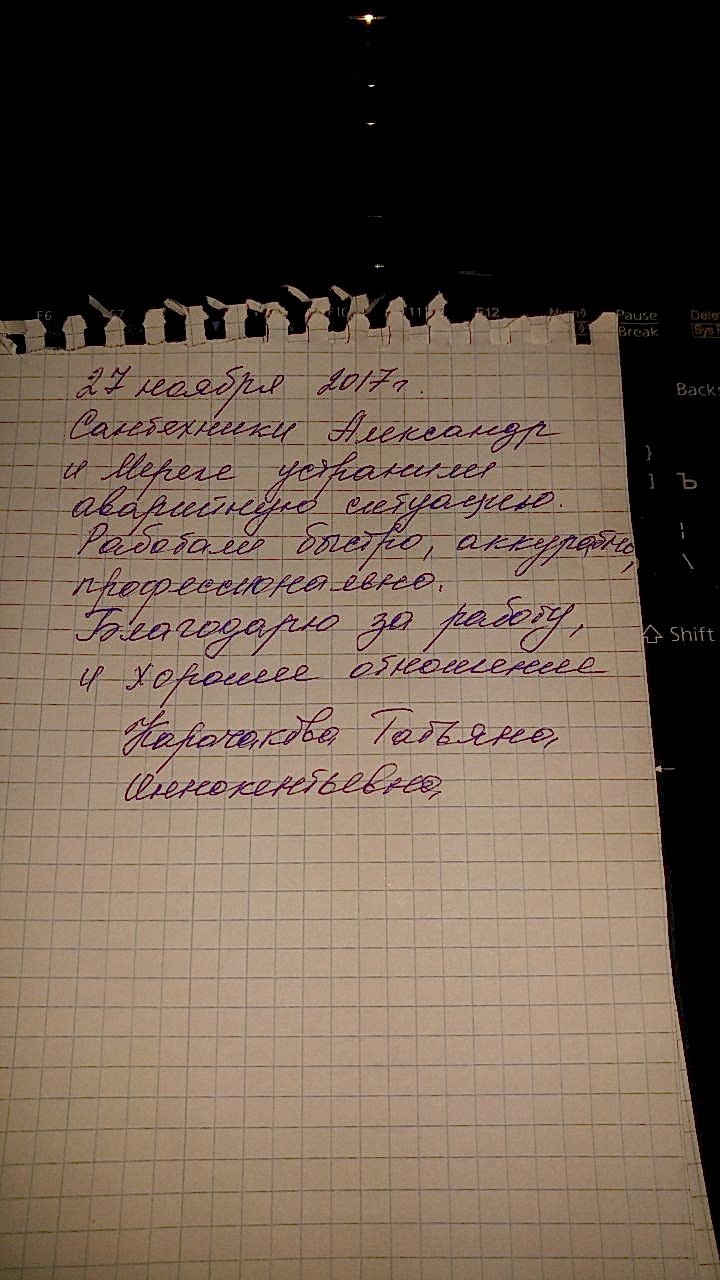 F6
F7
F12
Pause
Break
Back
}
]
Ъ
¦
\
Shift
27 ноября 2017г.
Сантехники Александр
и устранили
аварийную ситуацию.
Работали быстро, аккуратно,
профессионально.
Благодарю за работу,
и хорошее отношение
Татьяна
Иннокентьевна